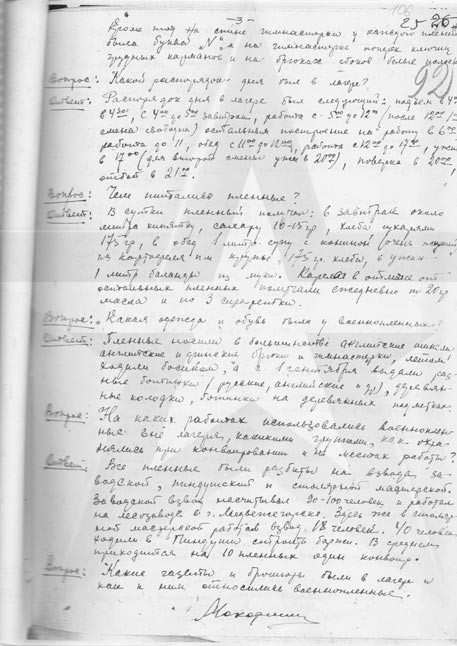 - 3 -
106
25 26
92
Кроме того на спине гимнастерки у каждого пленного
была буква "N", а на гимнастерке поперек клапанов
грудных карманов и на брюках с боков белые полосы
Вопрос: Какой распорядок дня был в лагере?
Ответ: Распорядок дня в лагере был следующий: подъем в 4
завтрак, работа с 5 до 12 (после 12 1
смена свободна) остальные построение на работу в 6
работа до 11, обед с 11 до 12, работа с 12 до 17, ужин
в 17 (для второй смены ужин в 20), поверка в 20,
отбой в 21.
Вопрос: Чем питались пленные?
Ответ: В сутки пленный получал: в завтрак около
литра кипятку, сахару 10-15 гр, хлеба
175 гр, в обед 1 литр супу с кониной (очень жидкий
из картофеля или крупы), 175 гр. хлеба, в ужин -
1 литр баланды из муки. в отличие от
остальных пленных получали ежедневно по 20 гр
масла и по 3 сигаретки.
Вопрос: Какая одежда и обувь была у военнопленных?
Ответ: Пленные носили в большинстве английские шинели
английские и финские брюки и гимнастерки, летом
ходили босиком, а с 1 сентября выдали раз-
ные ботинки (русские, английские и др), деревян-
ные колодки, ботинки на деревянных подметках.
Вопрос: На каких работах использовались военноплен-
ные вне лагеря, какими группами, как охра-
нялись при конвоировании и на местах работы?
Ответ: Все пленные были разбиты на взвода: за-
водской, пиндушский и столярной мастерской.
Заводской взвод насчитывал 90-100 человек и работал
на лесозаводе в г. Медвежегорске. Здесь же в столяр-
ной мастерской работал взвод 18 человек. 40 человек
ходили в Пиндуши строить баржи. В среднем
приходится на 10 пленных один конвоир.
Вопрос: Какие газеты и брошюры были в лагере и
как к ним относились военнопленные.